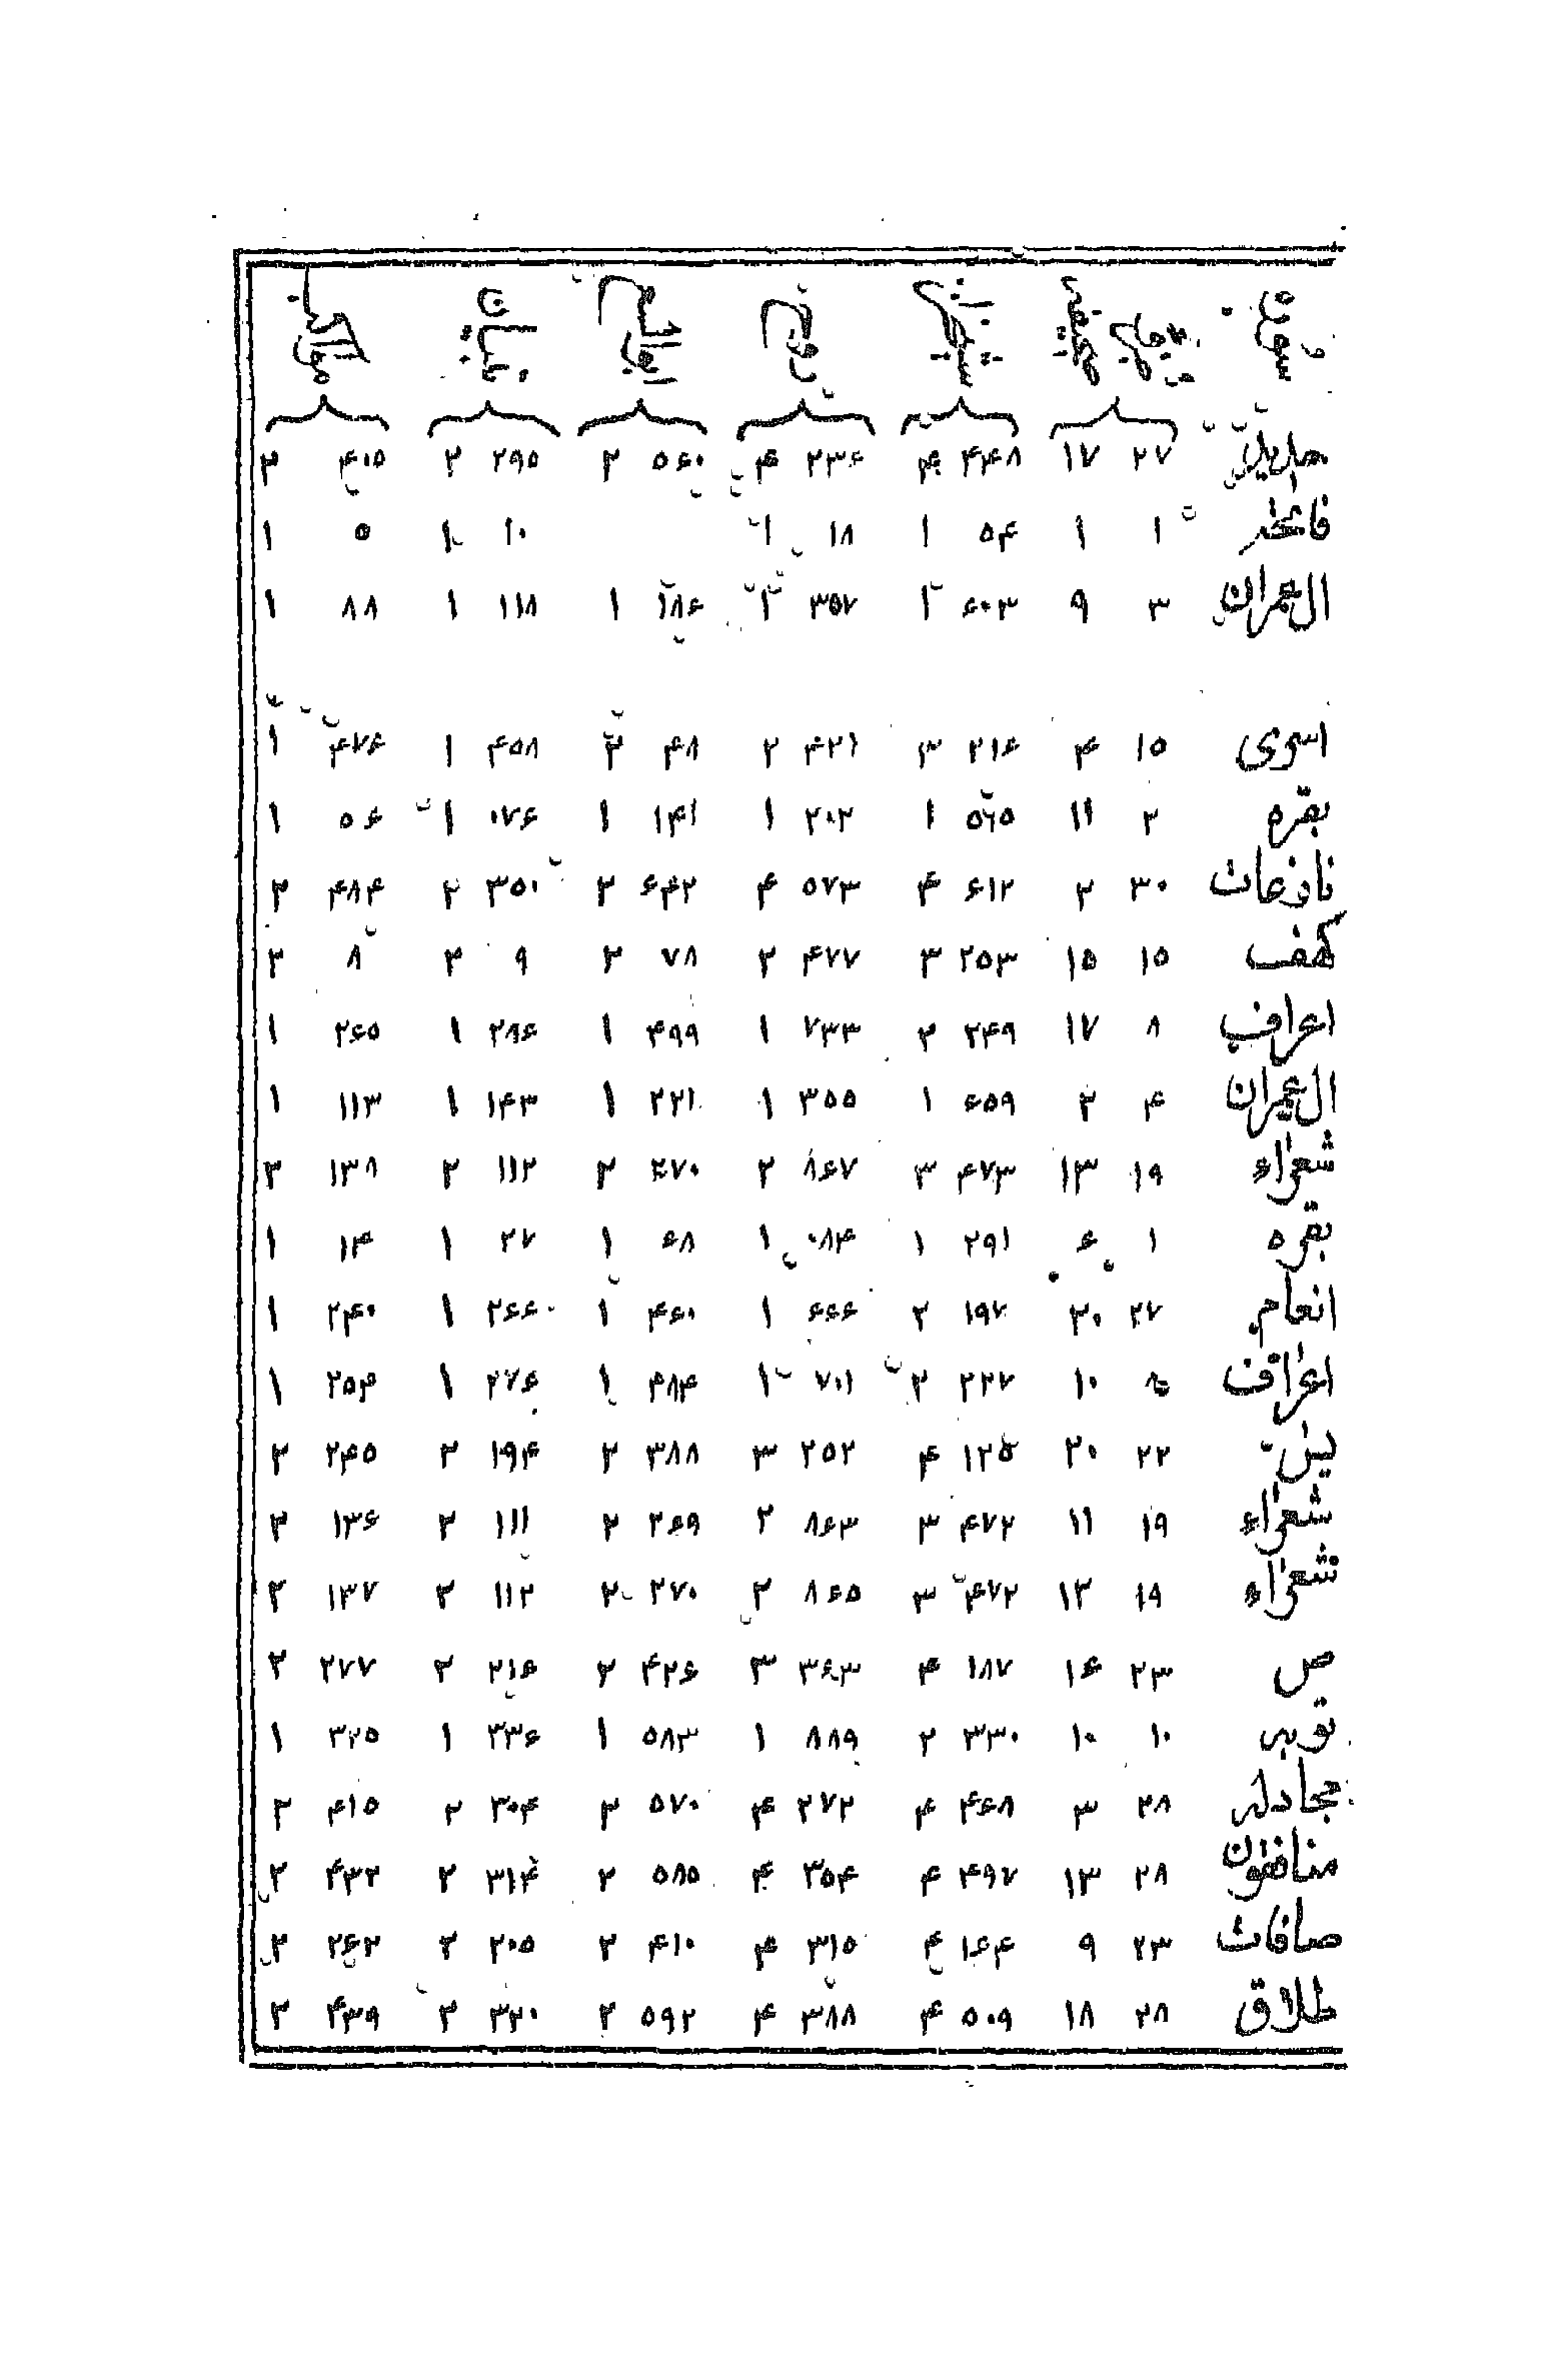 ۲۷ ۱۷ ۴۴۸ ۴ ۲۳۶ ۴ ۵۶۰ ۲ ۲۹۵ ۲ ۴۰۵ ۲
فاتحه ۱ ۱ ۵۴ ۱ ۱۸ ۱ ۱۰ ۱ ۵ ۱
ال عمران ۳ ۹ ۶۰۳ ۱ ۳۵۷ ۱ ۱۸۶ ۱ ۱۱۸ ۱ ۸۸ ۱
اسری ۱۵ ۴ ۲۱۶ ۳ ۴۲۱ ۲ ۴۸ ۲ ۴۵۸ ۱ ۴۷۶ ۱
بقره ۲ ۱۱ ۵۶۵ ۱ ۲۰۲ ۱ ۱۴۱ ۱ ۰۷۶ ۱ ۵۶ ۱
نازعات ۳۰ ۲ ۶۱۲ ۴ ۵۷۳ ۴ ۶۴۲ ۲ ۳۵۰ ۲ ۴۸۴ ۲
کهف ۱۵ ۱۵ ۲۵۳ ۳ ۴۷۷ ۲ ۷۸ ۲ ۹ ۲ ۸ ۲
اعراف ۸ ۱۷ ۲۴۹ ۲ ۷۳۳ ۱ ۴۹۹ ۱ ۲۸۶ ۱ ۲۶۵ ۱
ال عمران ۴ ۲ ۶۵۹ ۱ ۳۵۵ ۱ ۲۲۱ ۱ ۱۴۳ ۱ ۱۱۳ ۱
شعراء ۱۹ ۱۳ ۴۷۳ ۳ ۸۶۷ ۲ ۲۷۰ ۲ ۱۱۲ ۲ ۱۳۸ ۲
بقره ۱ ۶ ۲۹۱ ۱ ۰۸۴ ۱ ۶۸ ۱ ۲۷ ۱ ۱۴ ۱
انعام ۲۷ ۲۰ ۱۹۷ ۲ ۶۶۶ ۱ ۴۶۰ ۱ ۲۶۶ ۱ ۲۴۰ ۱
اعراف ۱۰ ۲۲۷ ۲ ۷۰۱ ۱ ۴۸۴ ۱ ۲۷۶ ۱ ۲۵۴ ۱
یس ۲۲ ۲۰ ۱۲۵ ۴ ۲۵۲ ۳ ۳۸۸ ۲ ۱۹۴ ۲ ۲۴۵ ۲
شعراء ۱۹ ۱۱ ۴۷۲ ۳ ۸۶۳ ۲ ۲۶۹ ۲ ۱۱۱ ۲ ۱۳۶ ۲
شعراء ۱۹ ۱۲ ۴۷۲ ۳ ۸۶۵ ۲ ۲۷۰ ۲ ۱۱۲ ۲ ۱۳۷ ۲
ص ۲۳ ۱۶ ۱۸۷ ۴ ۳۶۳ ۳ ۴۲۶ ۲ ۲۱۶ ۲ ۲۷۷ ۲
توبه ۱۰ ۱۰ ۳۳۰ ۲ ۸۸۹ ۱ ۵۸۳ ۱ ۳۳۶ ۱ ۳۲۵ ۱
مجادله ۲۸ ۳ ۴۶۸ ۴ ۲۷۲ ۴ ۵۷۰ ۲ ۳۰۴ ۲ ۴۱۵ ۲
منافقون ۲۸ ۱۳ ۴۹۷ ۴ ۳۵۴ ۴ ۵۸۵ ۲ ۳۱۴ ۲ ۴۳۲ ۲
صافات ۲۳ ۹ ۱۶۴ ۴ ۳۱۵ ۴ ۴۱۰ ۲ ۲۰۵ ۲ ۲۶۲ ۲
طلاق ۲۸ ۱۸ ۵۰۹ ۴ ۳۸۸ ۴ ۵۹۲ ۲ ۳۲۰ ۲ ۴۳۹ ۲